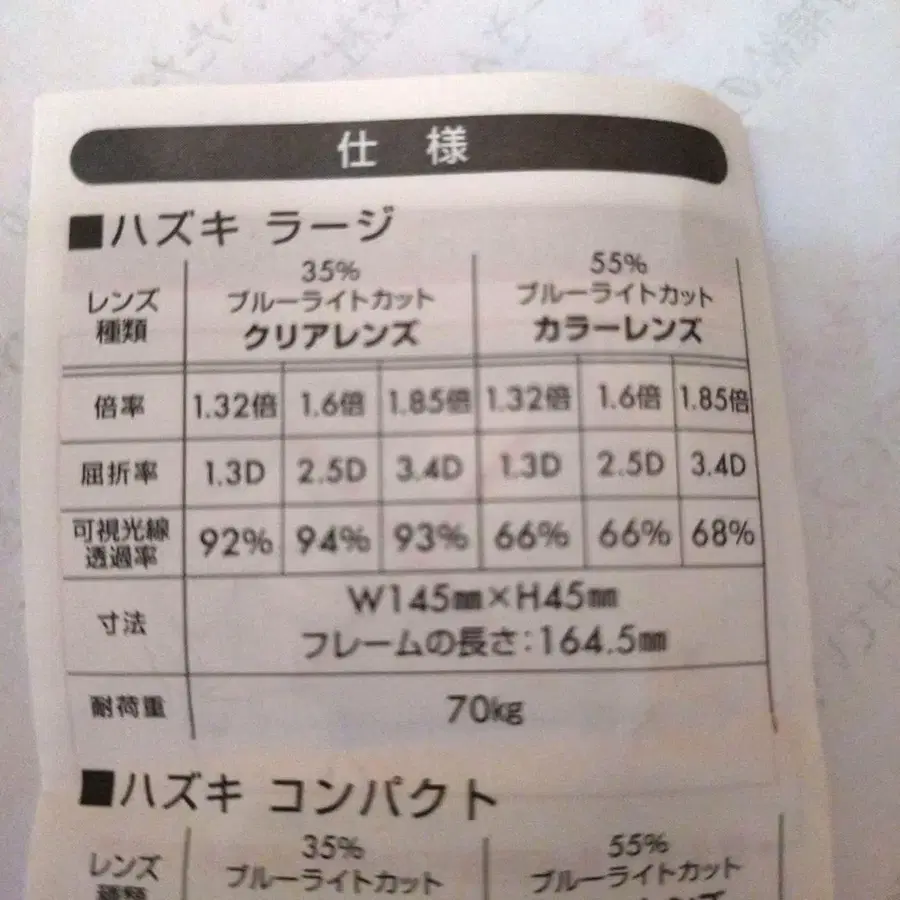 仕 様
■ハズキ ラージ
レンズ
種類
35%
ブルーライトカット
クリアレンズ
55%
ブルーライトカット
カラーレンズ
倍率 1.32倍 1.6倍 1.85倍 1.32倍 1.6倍 1.85倍
屈折率 1.3D 2.5D 3.4D 1.3D 2.5D 3.4D
可視光線
透過率
92% 94% 93% 66% 66% 68%
寸法
W145㎜×H45㎜
フレームの長さ:164.5㎜
耐荷重 70㎏
■ハズキ コンパクト
レンズ
種類
35%
ブルーライトカット
55%
ブルーライトカット